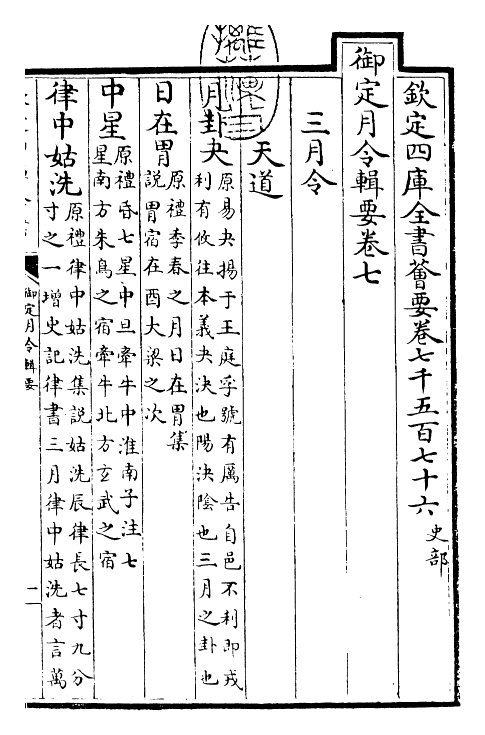 欽定四庫全書薈要卷七千五百七十六 史部
御定月令輯要卷七
三月令
天道
月卦夬 原易夬揚于王庭孚號有厲告自邑不利即戎
利有攸往本義夬決也陽決陰也三月之卦也
日在胃 原禮季春之月日在胃集
說胃宿在酉大梁之次
中星 原禮昏七星中旦牽牛中淮南子注七
星南方朱鳥之宿牽牛北方玄武之宿
律中姑洗 原禮律中姑洗集說姑洗辰律長七寸九分
寸之一增史記律書三月律中姑洗者言萬
御定月令輯要